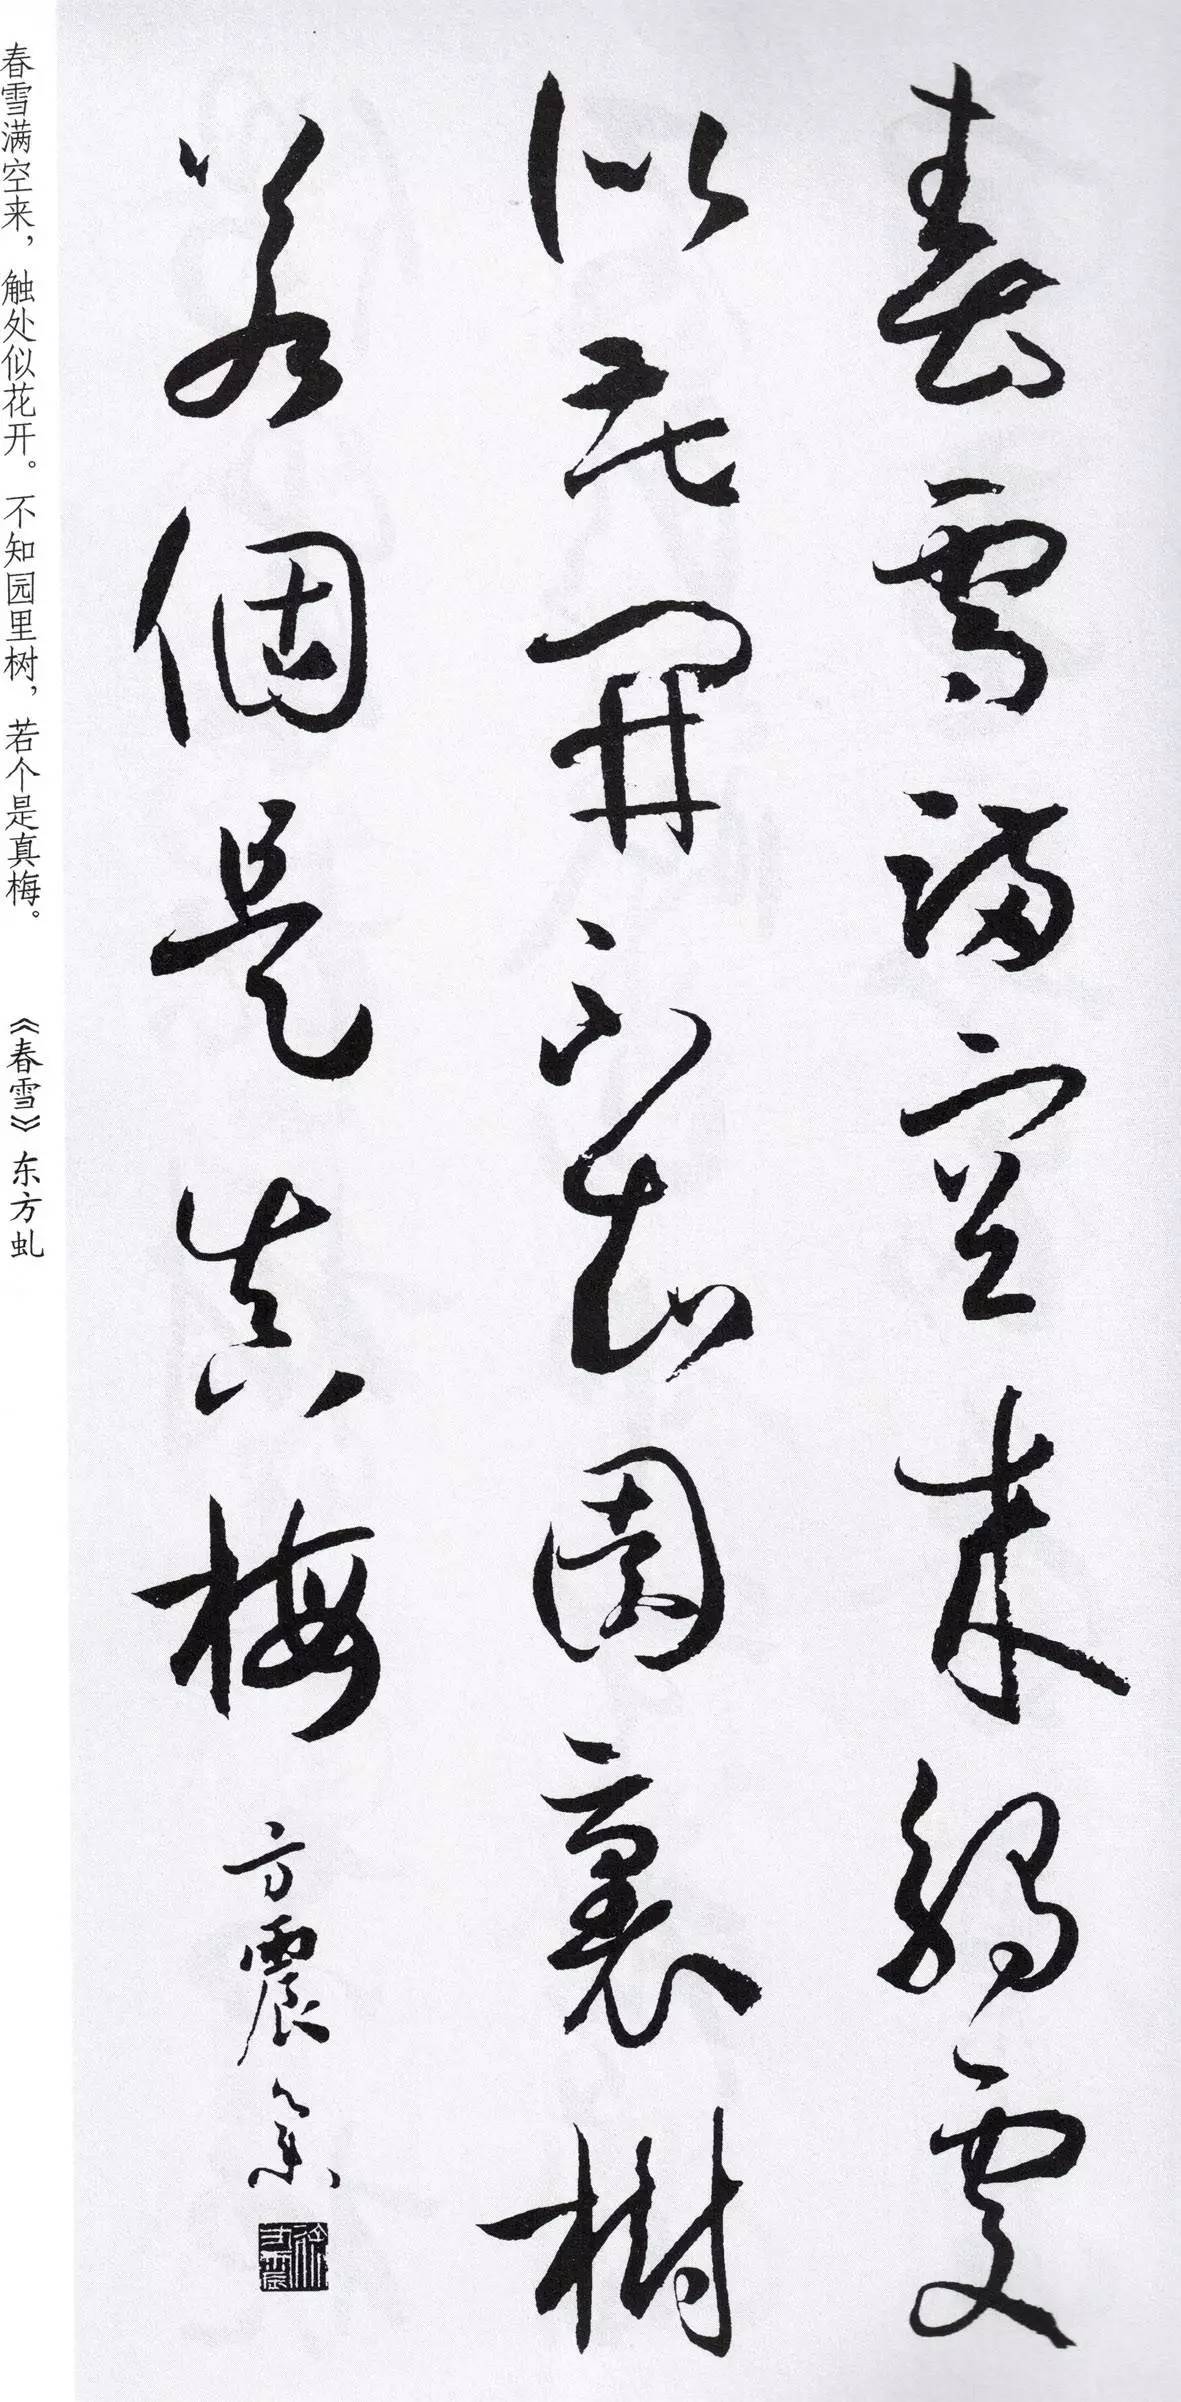 春雪滿空来觸處
似花開不知園裏樹
若個是真梅
方震篆
春雪满空来，触处似花开。不知园里树，若个是真梅。 《春雪》东方虬